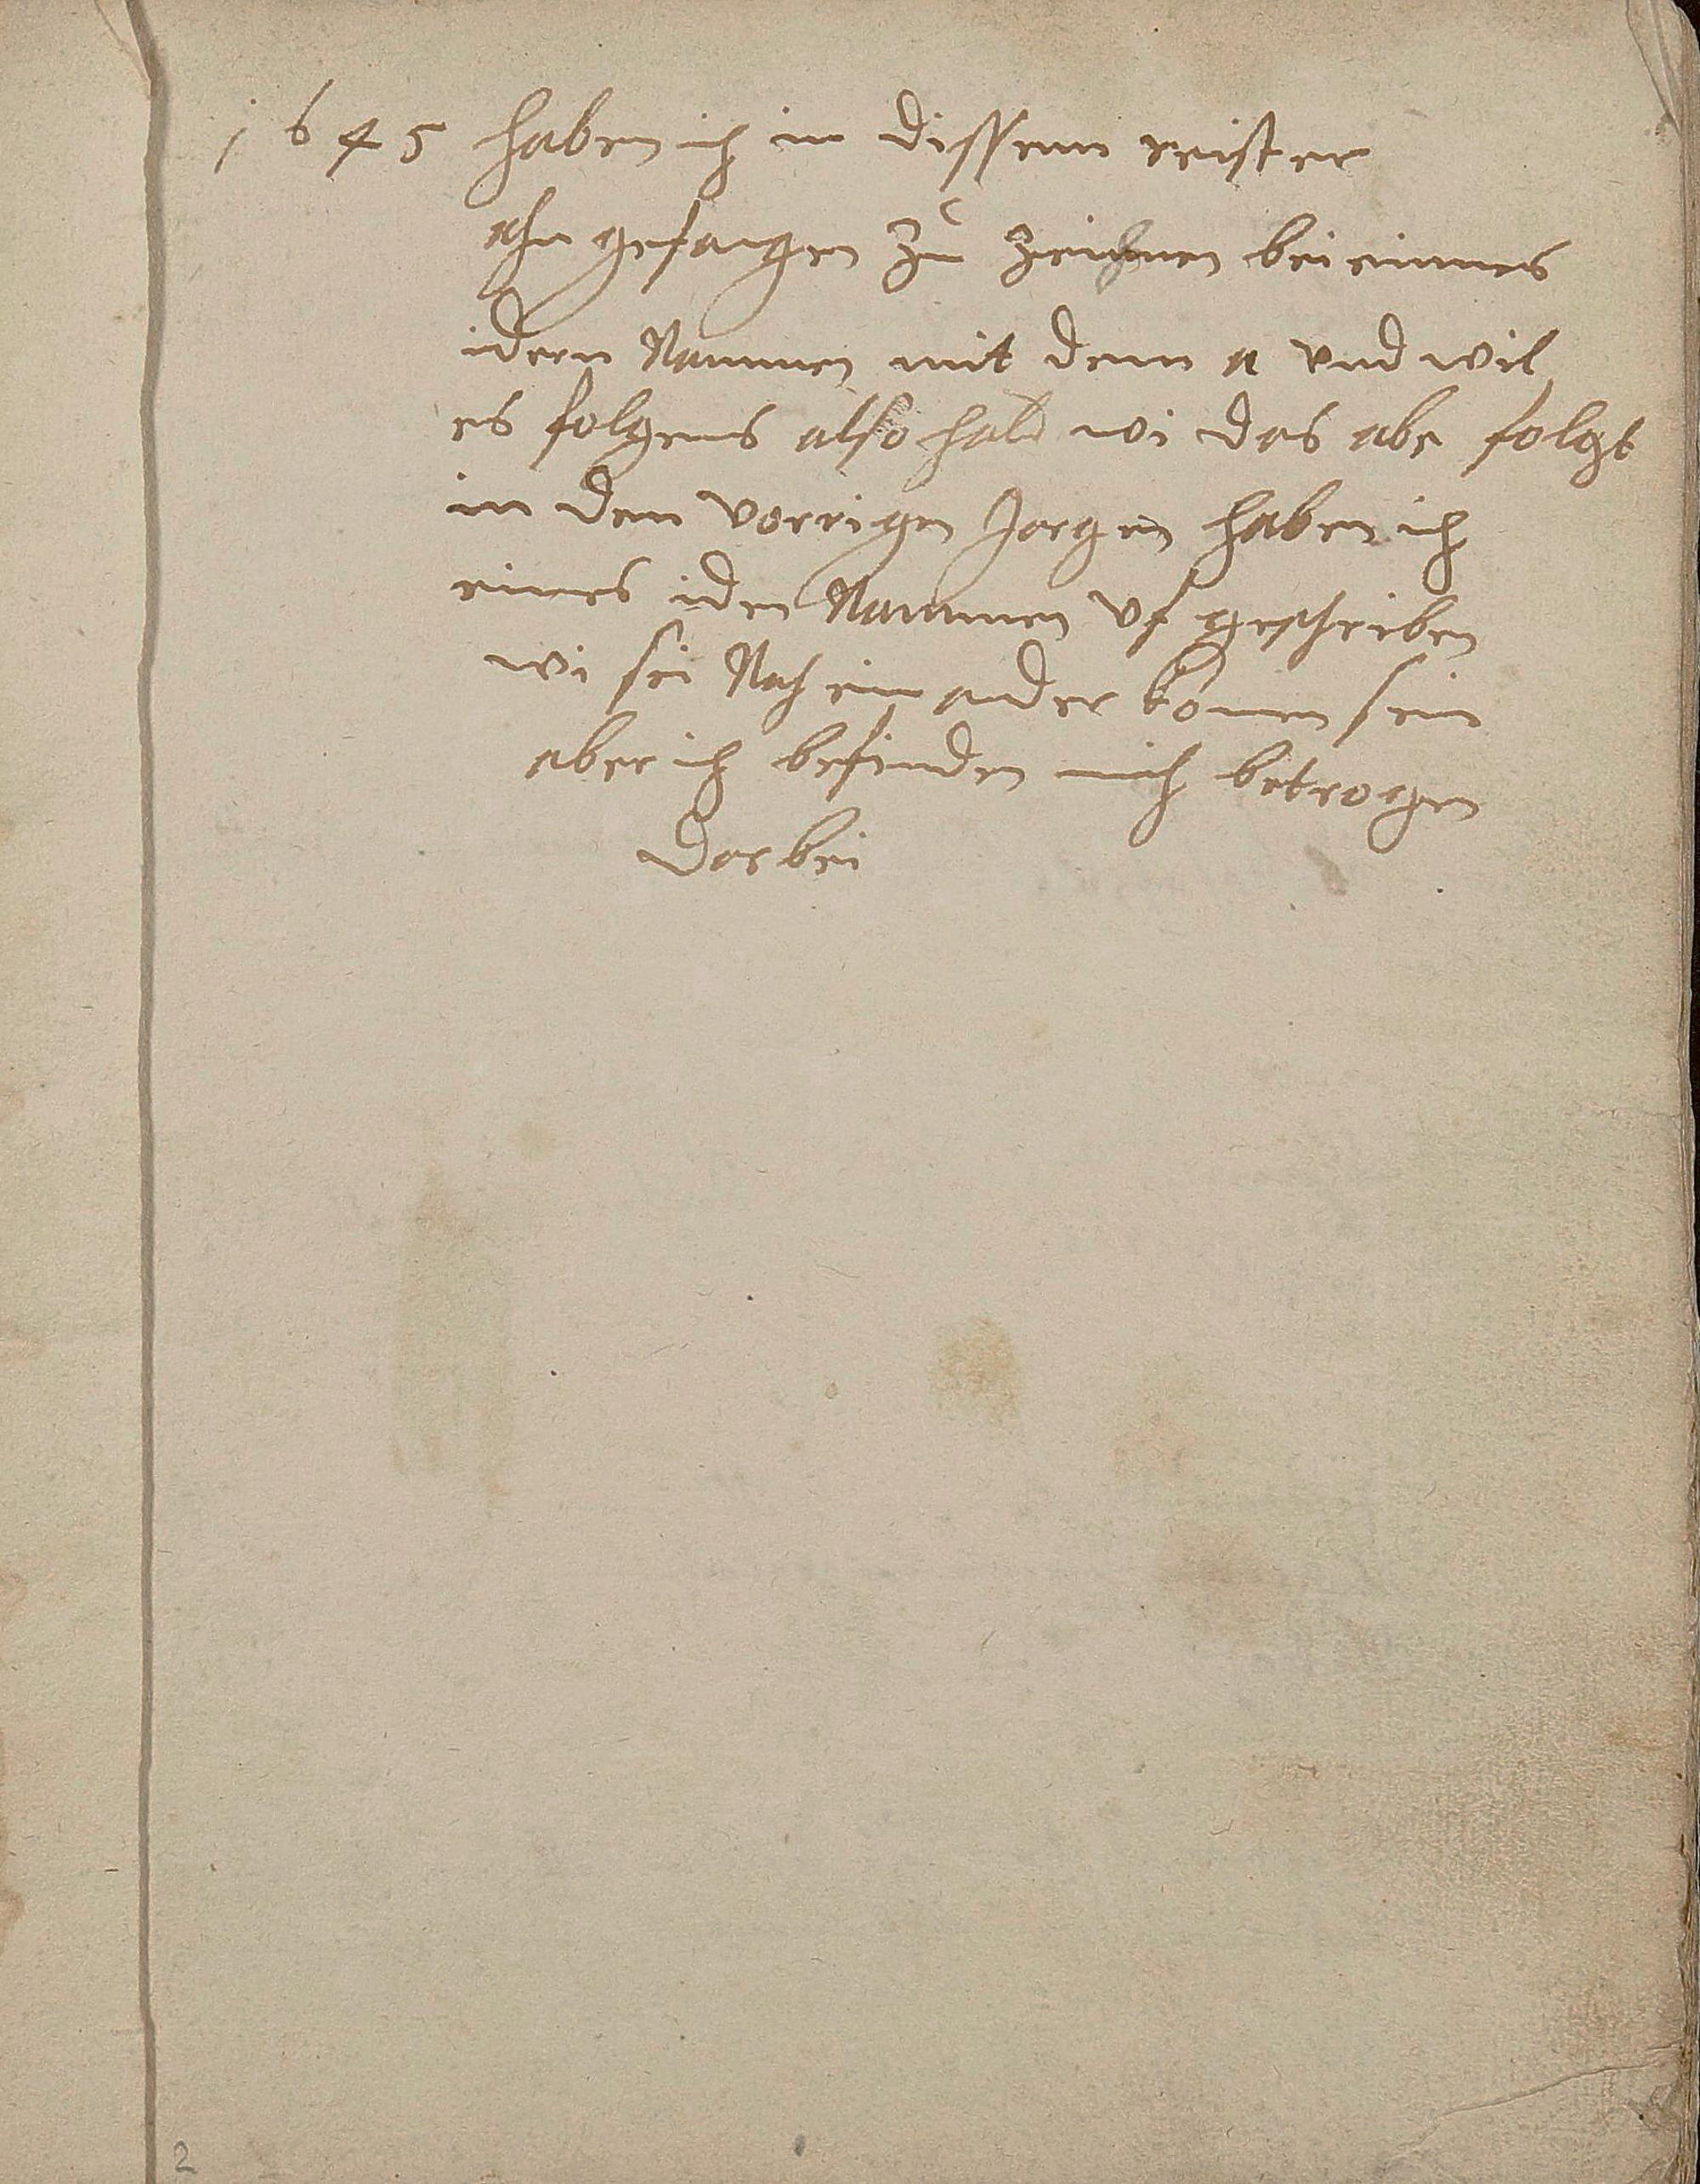 1645 haben ich in dissem reister
ahn gefangen zu zeichnen bei einnes
idern Nammen mit dem a und wil
es folgens also hald wi das abe folgt
in den vorrigen Jorgen haben ich
eines iden Nammen uf geschriben
wi sei Nach ein ander komen sein
aber ich befinden mich betrogen
dorbei
2